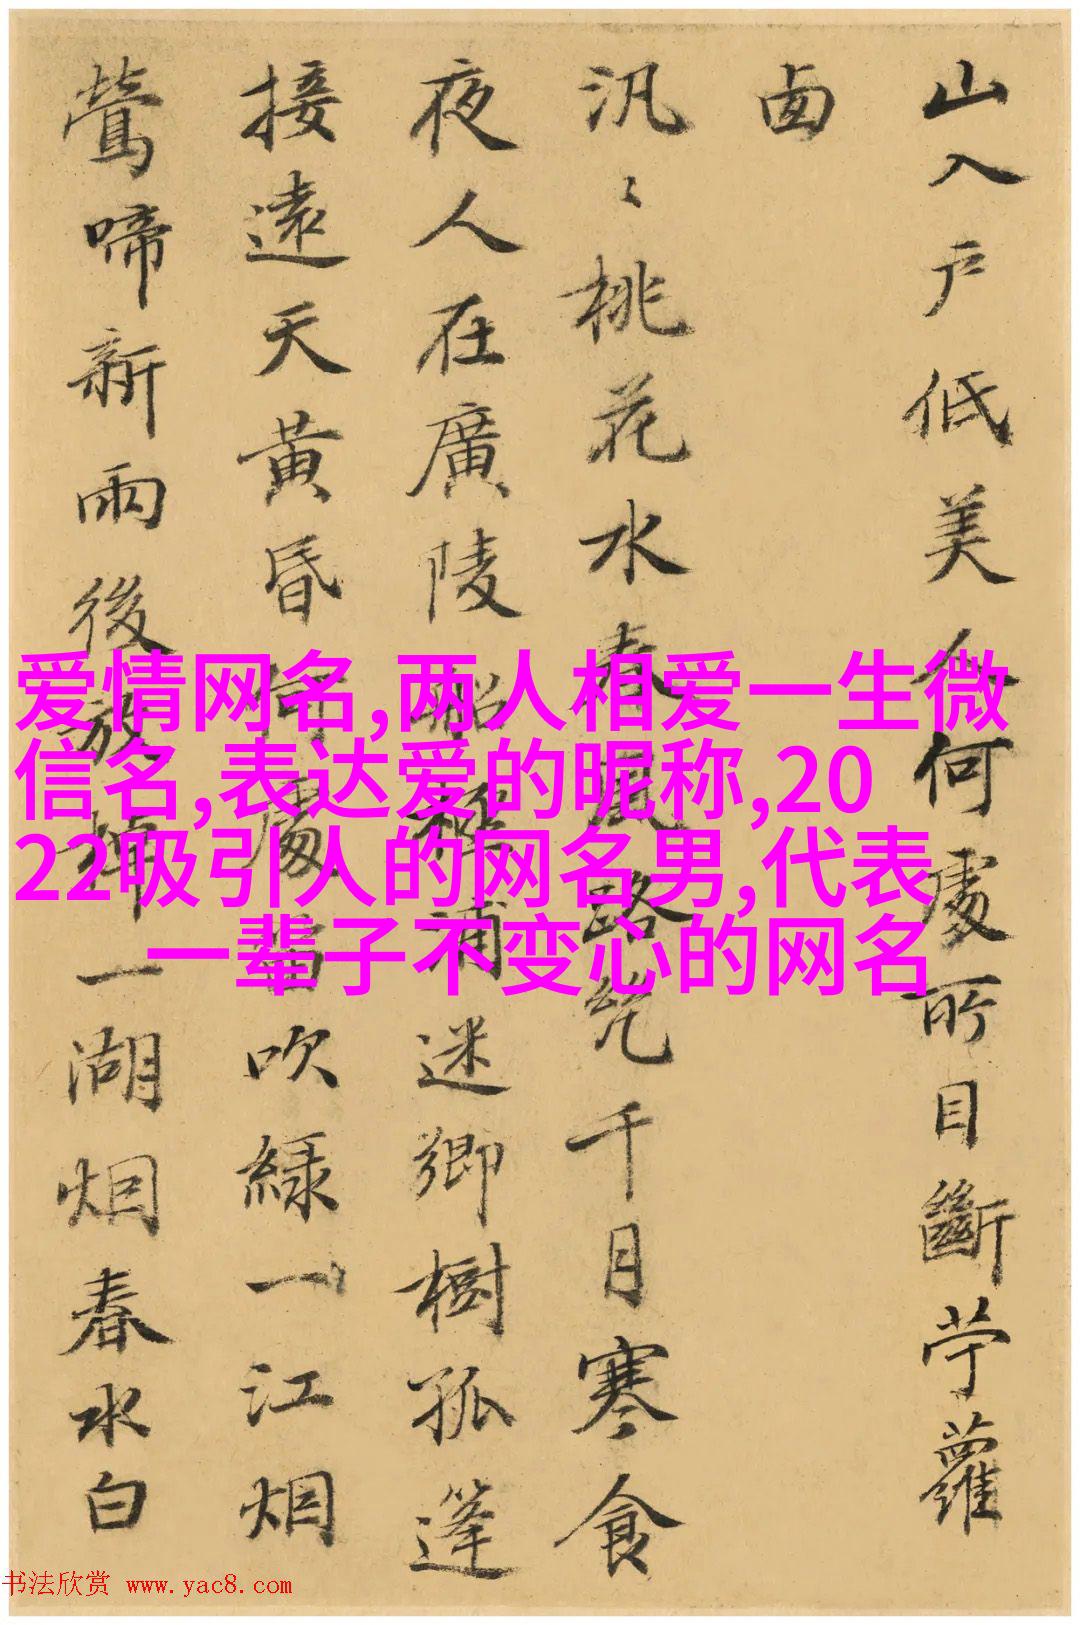 山入户低美人何處所目斷苧蘿
西
汎〻桃花水春風路千月寒食
夜人在廣陵船浦迷鄉樹孤篷
接遠天黄昏何處笛吹緑一江烟
鶯啼新雨後放棹一湖烟春水白
爱情网名,两人相爱一生微
信名,表达爱的昵称,20
22吸引人的网名男,代表
一辈子不变心的网名
书法欣赏 www.yac8.com